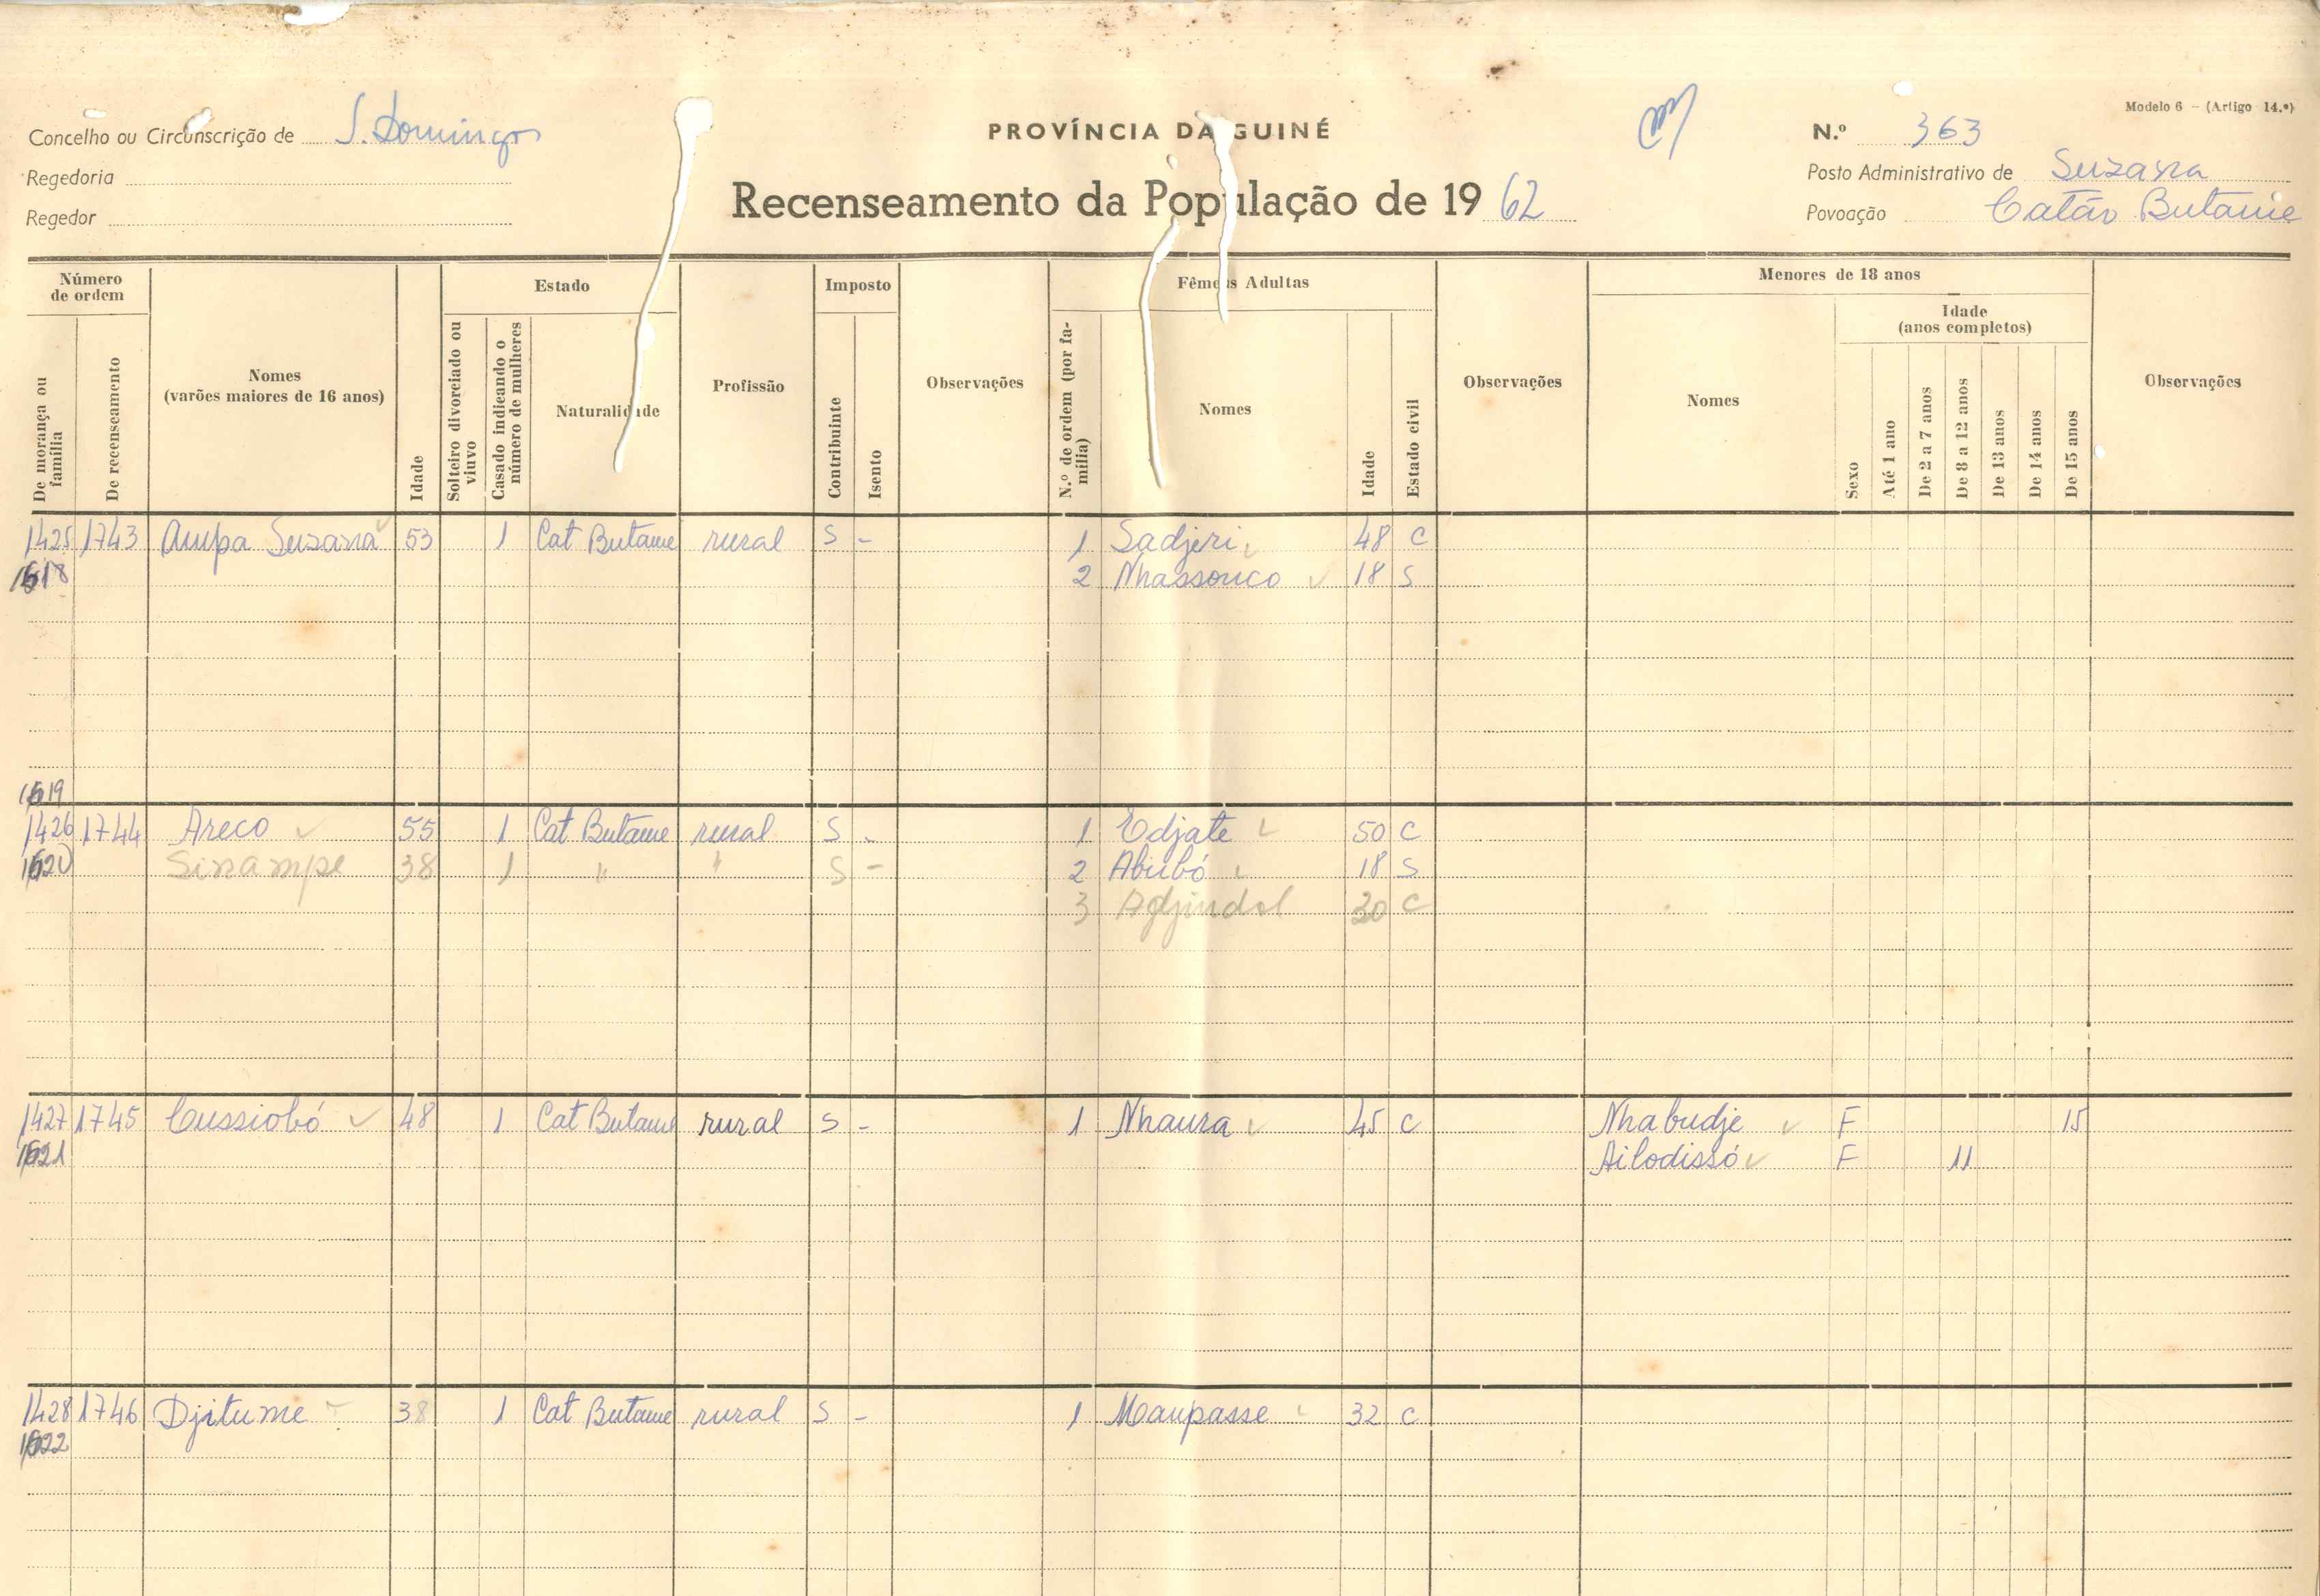 Modelo 6 – (Artigo 14.º)
Concelho ou Circunscrição de S. Domingos
PROVÍNCIA DA GUINÉ
N.º 363
Regedoria
Posto Administrativo de Suzana
Regedor
Recenseamento da População de 1962
Povoação Catão Butame
Número de ordem
Estado
Imposto
Fêmeas Adultas
Menores de 18 anos
De morança ou família
De recenseamento
Nomes (varões maiores de 16 anos)
Idade
Solteiro divorciado ou viuvo
Casado indicando o número de mulheres
Naturalidade
Profissão
Contribuinte
Isento
Observações
N.º de ordem (por família)
Nomes
Idade
Estado civil
Observações
Nomes
Sexo
Idade (anos completos)
Até 1 ano
De 2 a 7 anos
De 8 a 12 anos
De 13 anos
De 14 anos
De 15 anos
Observações
1425 1743 Ampa Suzana 53 1 Cat Butame rural S - 1 Sadjeri 48 C
1618 2 Nhassouco 18 S
1619
1426 1744 Areco 55 1 Cat Butame rural S - 1 Edjate 50 C
1620 Sinampe 38 1 " " S - 2 Abubó 18 S
3 Adjindol 30 C
1427 1745 Cussiobó 48 1 Cat Butame rural S - 1 Nhaura 45 C Nhabudje F 15
1621 Ailodissó F 11
1428 1746 Djitume 38 1 Cat Butame rural S - 1 Maupasse 32 C
1622